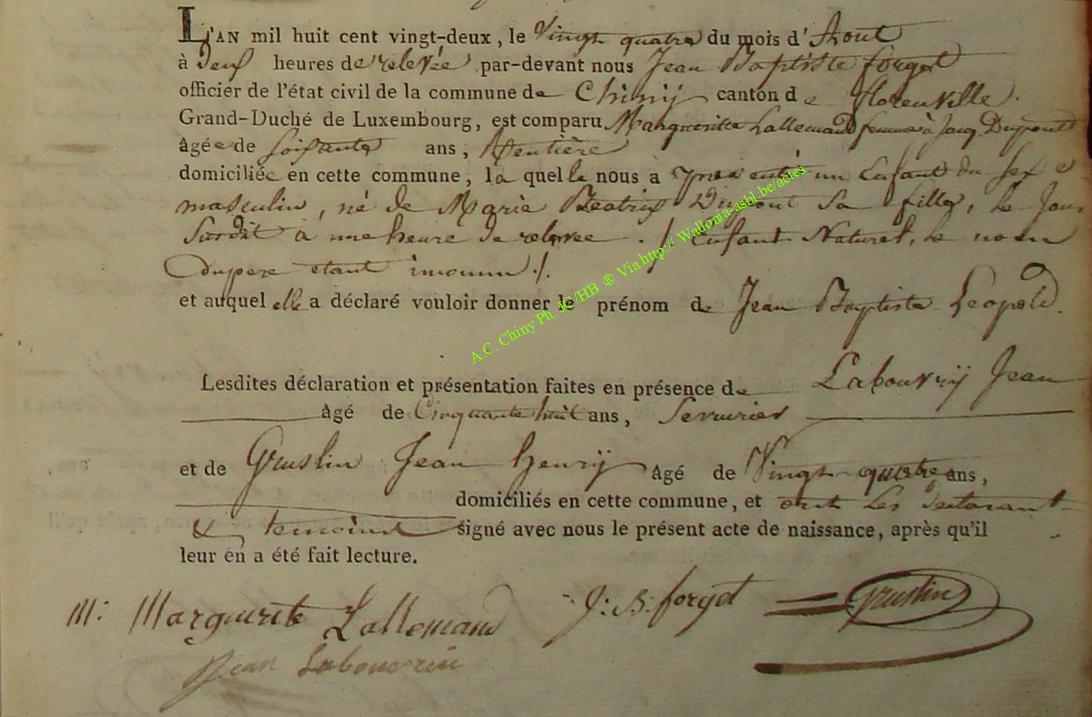 L'AN mil huit cent vingt-deux, le Vingt quatre du mois d'Aout
à Deux heures de relevée par-devant nous Jean Baptiste forget
officier de l'état civil de la commune de Chiny canton de florenville.
Grand-Duché de Luxembourg, est comparu Margueritte Lallemand femme à Jacq Dupont
âgée de soisante ans, Rentière
domiciliée en cette commune, la quelle nous a presenté un Enfant du sexe
masculin, né de Marie Beatrix Dupont sa fille, le Jour
Susdit à une heure de relevee ./ Enfant Naturel, le nom
du pere etant inconnu ./.
et auquel elle a déclaré vouloir donner le prénom de Jean Baptiste Leopold.
Lesdites déclaration et présentation faites en présence de Labouvrÿ Jean
âgé de Cinquante huit ans, Serrurier
et de Gruslin Jean henrÿ âgé de Vingt-quatre ans,
domiciliés en cette commune, et ont les declarant
& temoins signé avec nous le présent acte de naissance, après qu'il
leur en a été fait lecture.
M: Marguerite Lallemand J: B: forget Gruslin
Jean Labouvrie
A.C. Chiny Ph. JG /HB ® Via http:// Wallonia-asbl.be/actes